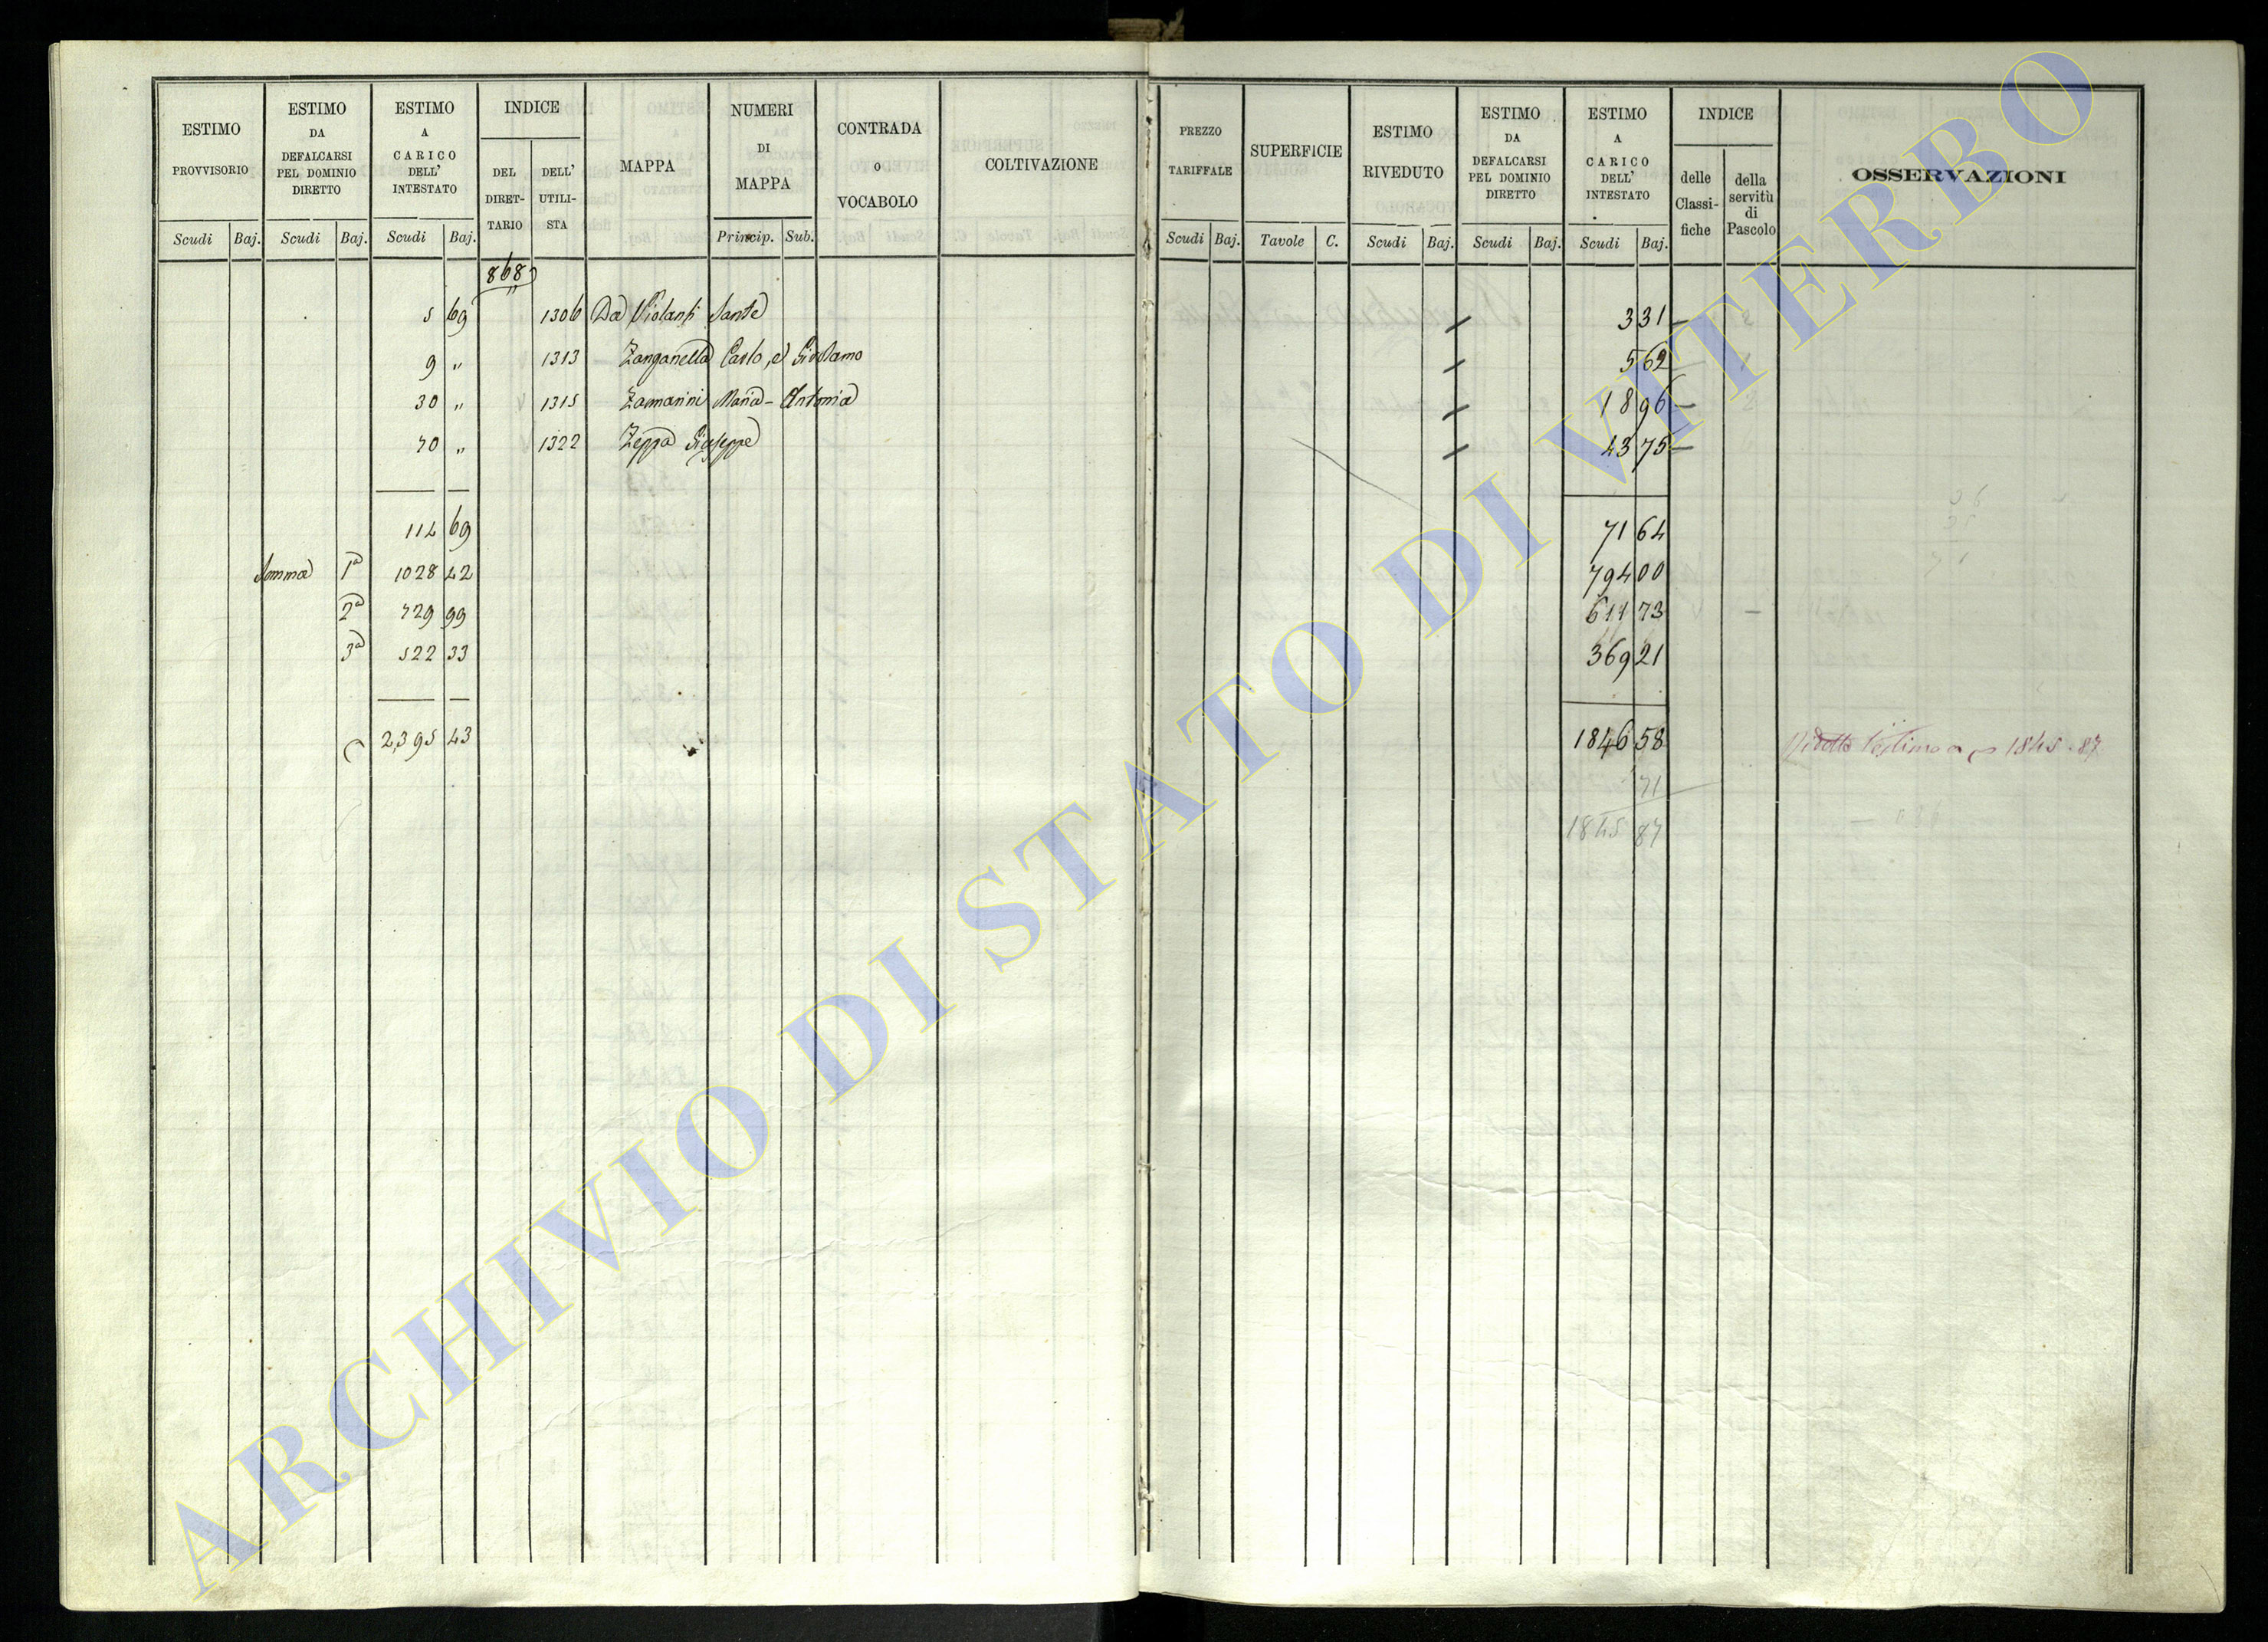 ESTIMO PROVVISORIO
Scudi Baj.
ESTIMO DA DEFALCARSI PEL DOMINIO DIRETTO
Scudi Baj.
ESTIMO A CARICO DELL' INTESTATO
Scudi Baj.
INDICE
DEL DIRET-TARIO
DELL' UTILI-STA
MAPPA
NUMERI DI MAPPA
Princip. Sub.
CONTRADA o VOCABOLO
COLTIVAZIONE
PREZZO TARIFFALE
Scudi Baj.
SUPERFICIE
Tavole C.
ESTIMO RIVEDUTO
Scudi Baj.
ESTIMO DA DEFALCARSI PEL DOMINIO DIRETTO
Scudi Baj.
ESTIMO A CARICO DELL' INTESTATO
Scudi Baj.
INDICE
delle Classi-fiche
della servitù di Pascolo
OSSERVAZIONI
868
5 69 1306 Da Violanti Sante 3 31
9 " 1313 Zanganella Carlo, e Girolamo 5 62
30 " 1315 Zammarini Maria-Antonia 18 96
70 " 1322 Zeppa Giuseppe 43 75
114 69 71 64
Somma 1a 1028 42 794 00
2a 729 99 611 73
3a 522 33 369 21
2,395 43 1846 58
71
1845 87
Ridotto l'estimo a 1845.87
ARCHIVIO DI STATO DI VITERBO